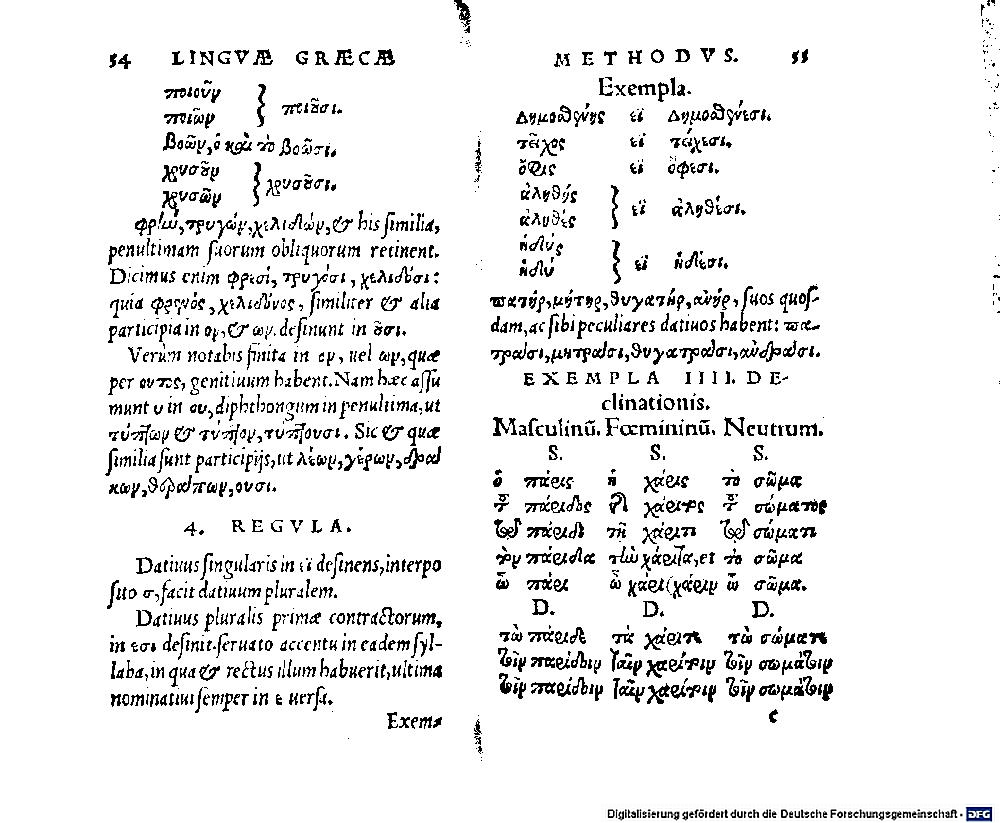 54 LINGVÆ GRÆCÆ
ποιοῦν
ποιῶν } ποιοῦσι.
βοῶν, ὁ καὶ τὸ βοῶσι.
χρυσοῦν
χρυσῶν } χρυσοῦσι.
τρυγών, χελιδών, & his similia,
penultimam suorum obliquorum retinent.
Dicimus enim φρεσί, τρυγόσι, χελιδόσι:
quia φρενός, χελιδόνος, similiter & alia
participia in ον, & ων. desinunt in οῦσι.
Verùm notabis finita in ον, uel ων, quæ
per οντος, genitiuum habent. Nam hæc assu
munt υ in ου, diphthongum in penultima, ut
τύπτων & τύπτον, τύπτουσι. Sic & quæ
similia sunt participijs, ut λέων, γέρων, δρά
κων, θεράπων, ουσι.
4. REGVLA.
Datiuus singularis in εϊ desinens, interpo
sito σ, facit datiuum pluralem.
Datiuus pluralis primæ contractorum,
in εσι desinit. seruato accentu in eadem syl-
laba, in qua & rectus illum habuerit, ultima
nominatiui semper in ε uersa.
Exem-
METHODVS. 55
Exempla.
Δημοσθένης εϊ Δημοσθένεσι.
τεῖχος εϊ τείχεσι.
ὄφις εϊ ὄφεσι.
ἀληθής
ἀληθές } εϊ ἀληθέσι.
ἡδύς
ἡδύ } εϊ ἡδέσι.
πατήρ, μήτηρ, θυγατήρ, ἀνήρ, suos quos-
dam, ac sibi peculiares datiuos habent: πα-
τράσι, μητράσι, θυγατράσι, ἀνδράσι.
EXEMPLA IIII. DE-
clinationis.
Masculinū. Fœmininū. Neutrum.
S. S. S.
ὁ πάρις ἡ χάρις τὸ σῶμα
τοῦ πάριδος τῆς χάριτος τοῦ σώματος
τῷ πάριδι τῇ χάριτι τῷ σώματι
τὸν πάριδα τὴν χάριτα, et τὸ σῶμα
ὦ πάρι ὦ χάρι (χάριν ὦ σῶμα.
D. D. D.
τὼ πάριδε τὰ χάριτε τὼ σώματε
τοῖν παρίδοιν ταῖν χαρίτοιν τοῖν σωμάτοιν
τοῖν παρίδοιν ταῖν χαρίτοιν τοῖν σωμάτοιν
c
Digitalisierung gefördert durch die Deutsche Forschungsgemeinschaft - DFG